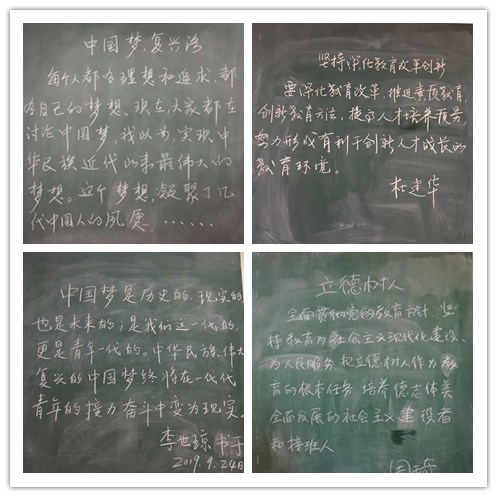 中国梦,复兴路
每个人都有理想和追求,都
有自己的梦想。现在,大家都在
讨论中国梦,我以为,实现中
华民族近代以来最伟大的
梦想。这个梦想,凝聚了几
代中国人的夙愿……
坚持深化教育改革创新
要深化教育改革,推进素质教育,
创新教育方法,提高人才培养质量,
努力形成有利于创新人才成长的
教育环境。
杜建华
中国梦是历史的,现实的
也是未来的;是我们这一代的,
更是青年一代的。中华民族伟大
复兴的中国梦终将在一代代
青年的接力奋斗中变为现实。
李世琼书于
2019.9.24日
立德树人
全面贯彻党的教育方针,坚
持教育为社会主义现代化建设、
为人民服务,把立德树人作为教
育的根本任务,培养德志体美
全面发展的社会主义建设者
和接班人